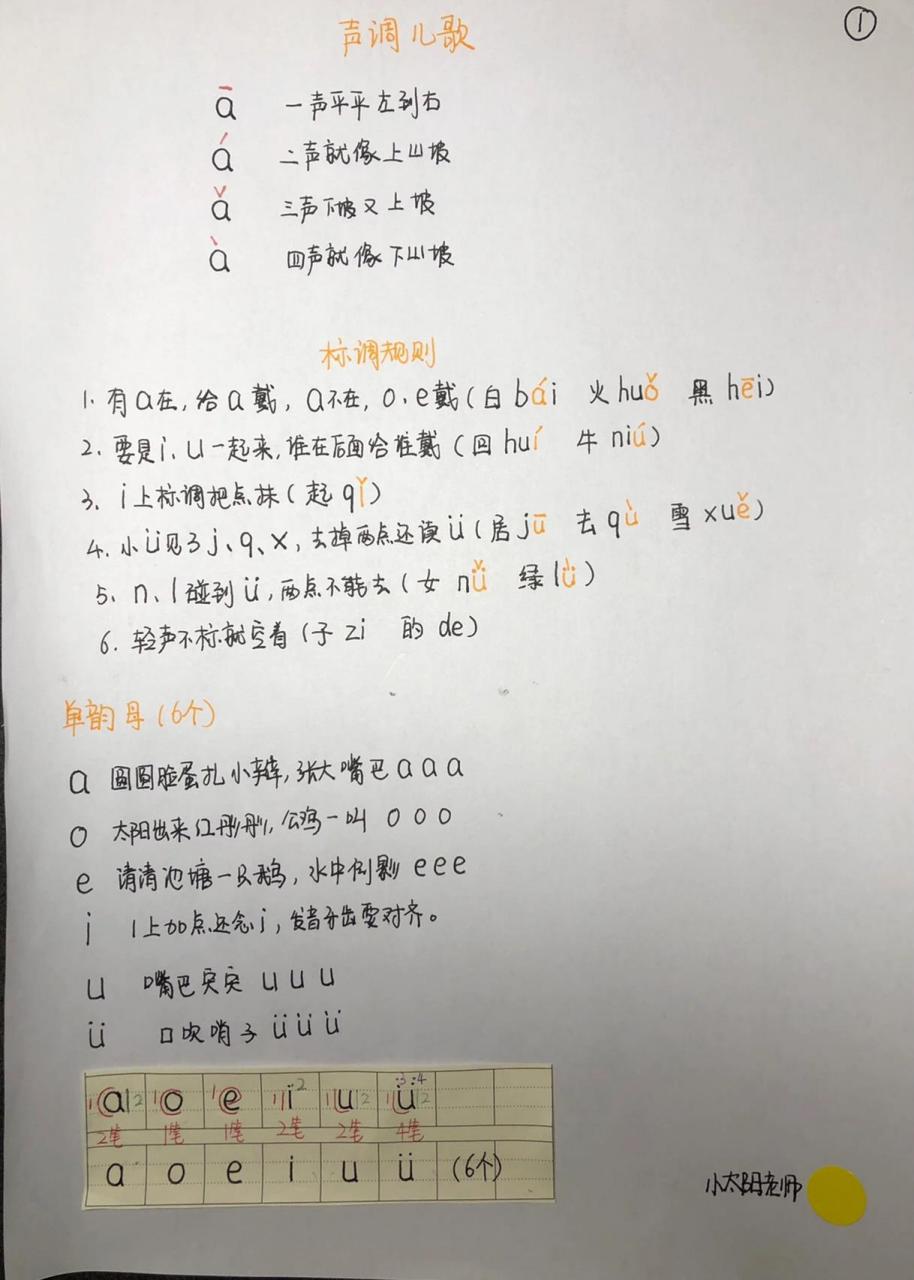 ①
声调儿歌
ā 一声平平左到右
á 二声就像上山坡
ǎ 三声下坡又上坡
à 四声就像下山坡
标调规则
1. 有a在,给a戴,a不在,o、e戴(白 bái 火 huǒ 黑 hēi)
2. 要是i、u一起来,谁在后面给谁戴(回 huí 牛 niú)
3. i上标调把点抹(起 qǐ)
4. 小ü见了j、q、x,去掉两点还读ü(居 jū 去 qù 雪 xuě)
5. n、l碰到ü,两点不能去(女 nǚ 绿 lǜ)
6. 轻声不标就空着(子 zi 的 de)
单韵母(6个)
a 圆圆脸蛋扎小辫,张大嘴巴 a a a
o 太阳出来红彤彤,公鸡一叫 o o o
e 清清池塘一只鹅,水中倒影 e e e
i 1上加点还念i,发音牙齿要对齐。
u 嘴巴突突 u u u
ü 口吹哨子 ü ü ü
1 a 2 1 o 1 e 1 i 2 1 u 2 1 ü 2 3 4
2笔 1笔 1笔 2笔 2笔 4笔
a o e i u ü (6个)
小太阳老师